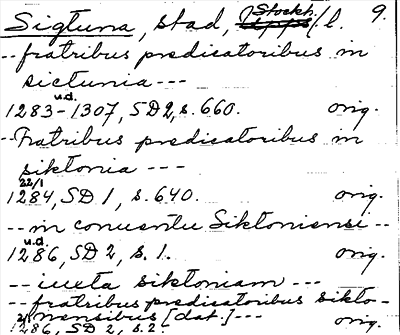 Sigtuna, stad, Stockh. l. 9.
--fratribus predicatoribus in
sictunia---
u.d.
1283-1307, SD2, s. 660. orig.
--Fratribus predicatoribus in
siktonia ---
22/1
1284, SD 1, s. 640. orig.
--in conuentu Siktoniensi--
u.d.
1286, SD 2, s. 1. orig.
--iuxta siktoniam ---
--fratribus predicatoribus sikto-
nensibus [dat.]---
1286, SD 2, s. 2. orig.